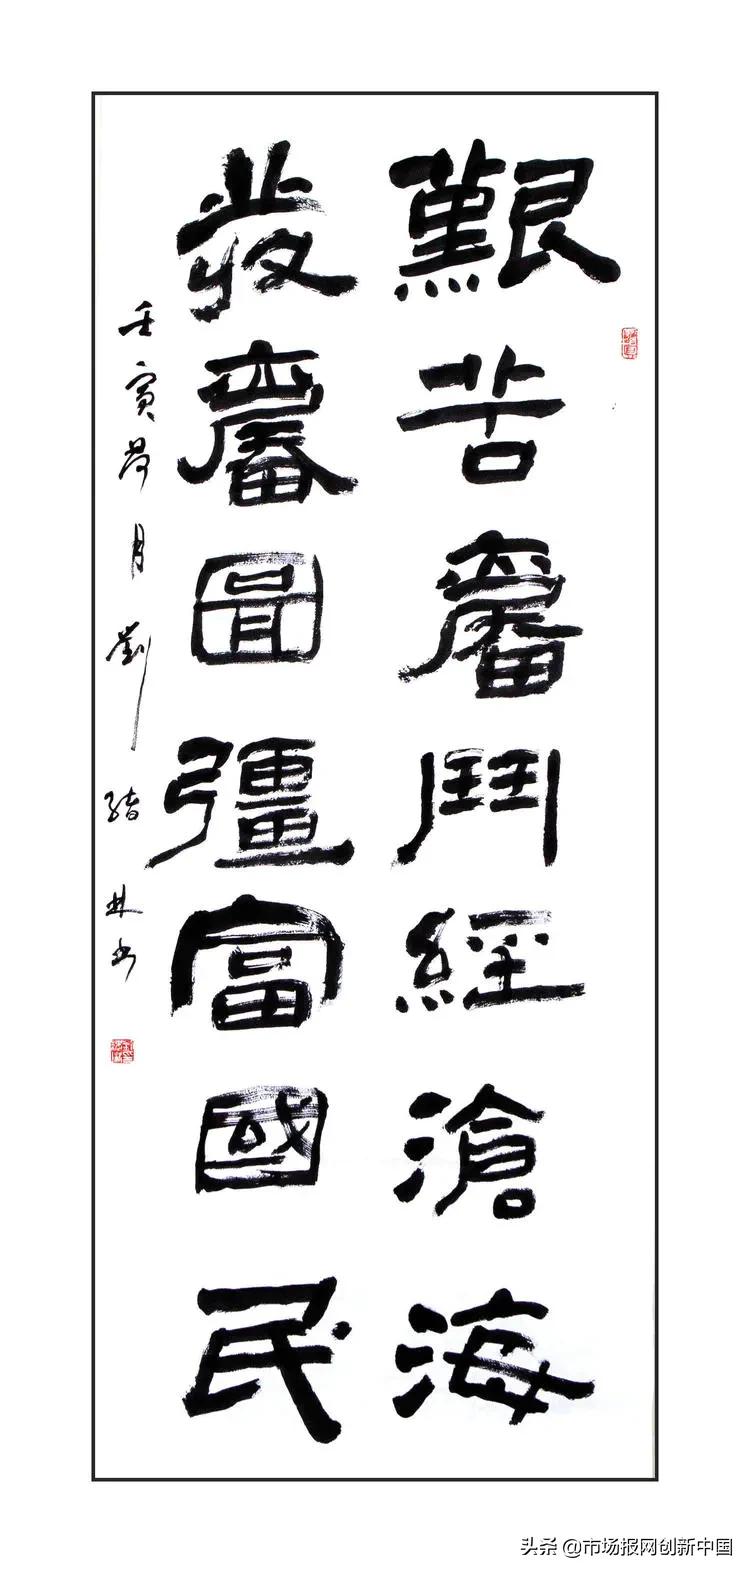 艱苦奮鬥經滄海
發奮圖彊富國民
壬寅月劉林书
头条 @市场报网创新中国